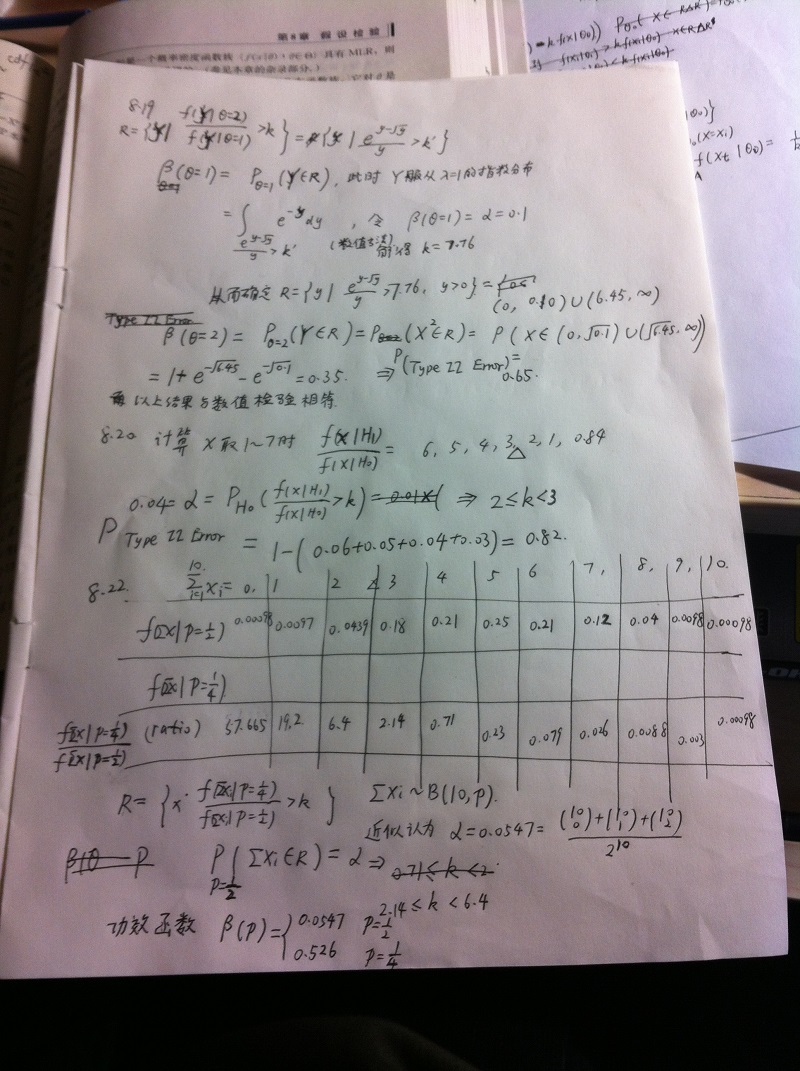 第8章 假设检验
8.19
R={y| f(y|θ=2)/f(y|θ=1) >k}={y| e^{y-√y}/y >k'}
β(θ=1)= P_{θ=1}(Y∈R), 此时 Y服从λ=1的指数分布
= ∫_{e^{y-√y}/y >k'} e^{-y}dy , 令 β(θ=1)=α=0.1
(数值方法) 解得 k=7.76
从而确定 R={y| e^{y-√y}/y >7.76, y>0}=
(0, 0.10)∪(6.45, ∞)
Type II Error
β(θ=2)= P_{θ=2}(Y∈R)=P(X²∈R)= P(X∈(0,√0.1)∪(√6.45, ∞))
=1+e^{-√6.45}-e^{-√0.1}=0.35. ⇒ P(Type II Error)=0.65.
以上结果与数值检验相符
8.20 计算 X取1~7时 f(x|H₁)/f(x|H₀) = 6, 5, 4, 3, 2, 1, 0.84
0.04=α=P_{H₀}(f(x|H₁)/f(x|H₀) >k)=0.01×( ⇒ 2≤k<3
P Type II Error = 1-(0.06+0.05+0.04+0.03)=0.82.
8.22. Σ_{i=1}^{10} xi= 0. 1 2 3 4 5 6 7, 8, 9, 10.
f(Σx|P=1/2) 0.00098 0.0097 0.0439 0.18 0.21 0.25 0.21 0.12 0.04 0.0098 0.00098
f(Σx|P=1/4)
f(Σx|P=1/4)/f(Σx|P=1/2) (ratio) 57.665 19.2 6.4 2.14 0.71 0.23 0.079 0.026 0.0088 0.003 0.00098
R={x: f(Σxi|P=1/4)/f(Σxi|P=1/2) >k} Σxi~B(10,p).
近似认为 α=0.0547= ((10 0)+(10 1)+(10 2))/2^{10}
β(θ P P_{P=1/2}(Σxi∈R)=α⇒ 0.71≤k<2
2.14≤k<6.4
功效函数 β(P)={0.0547 P=1/2
0.526 P=1/4